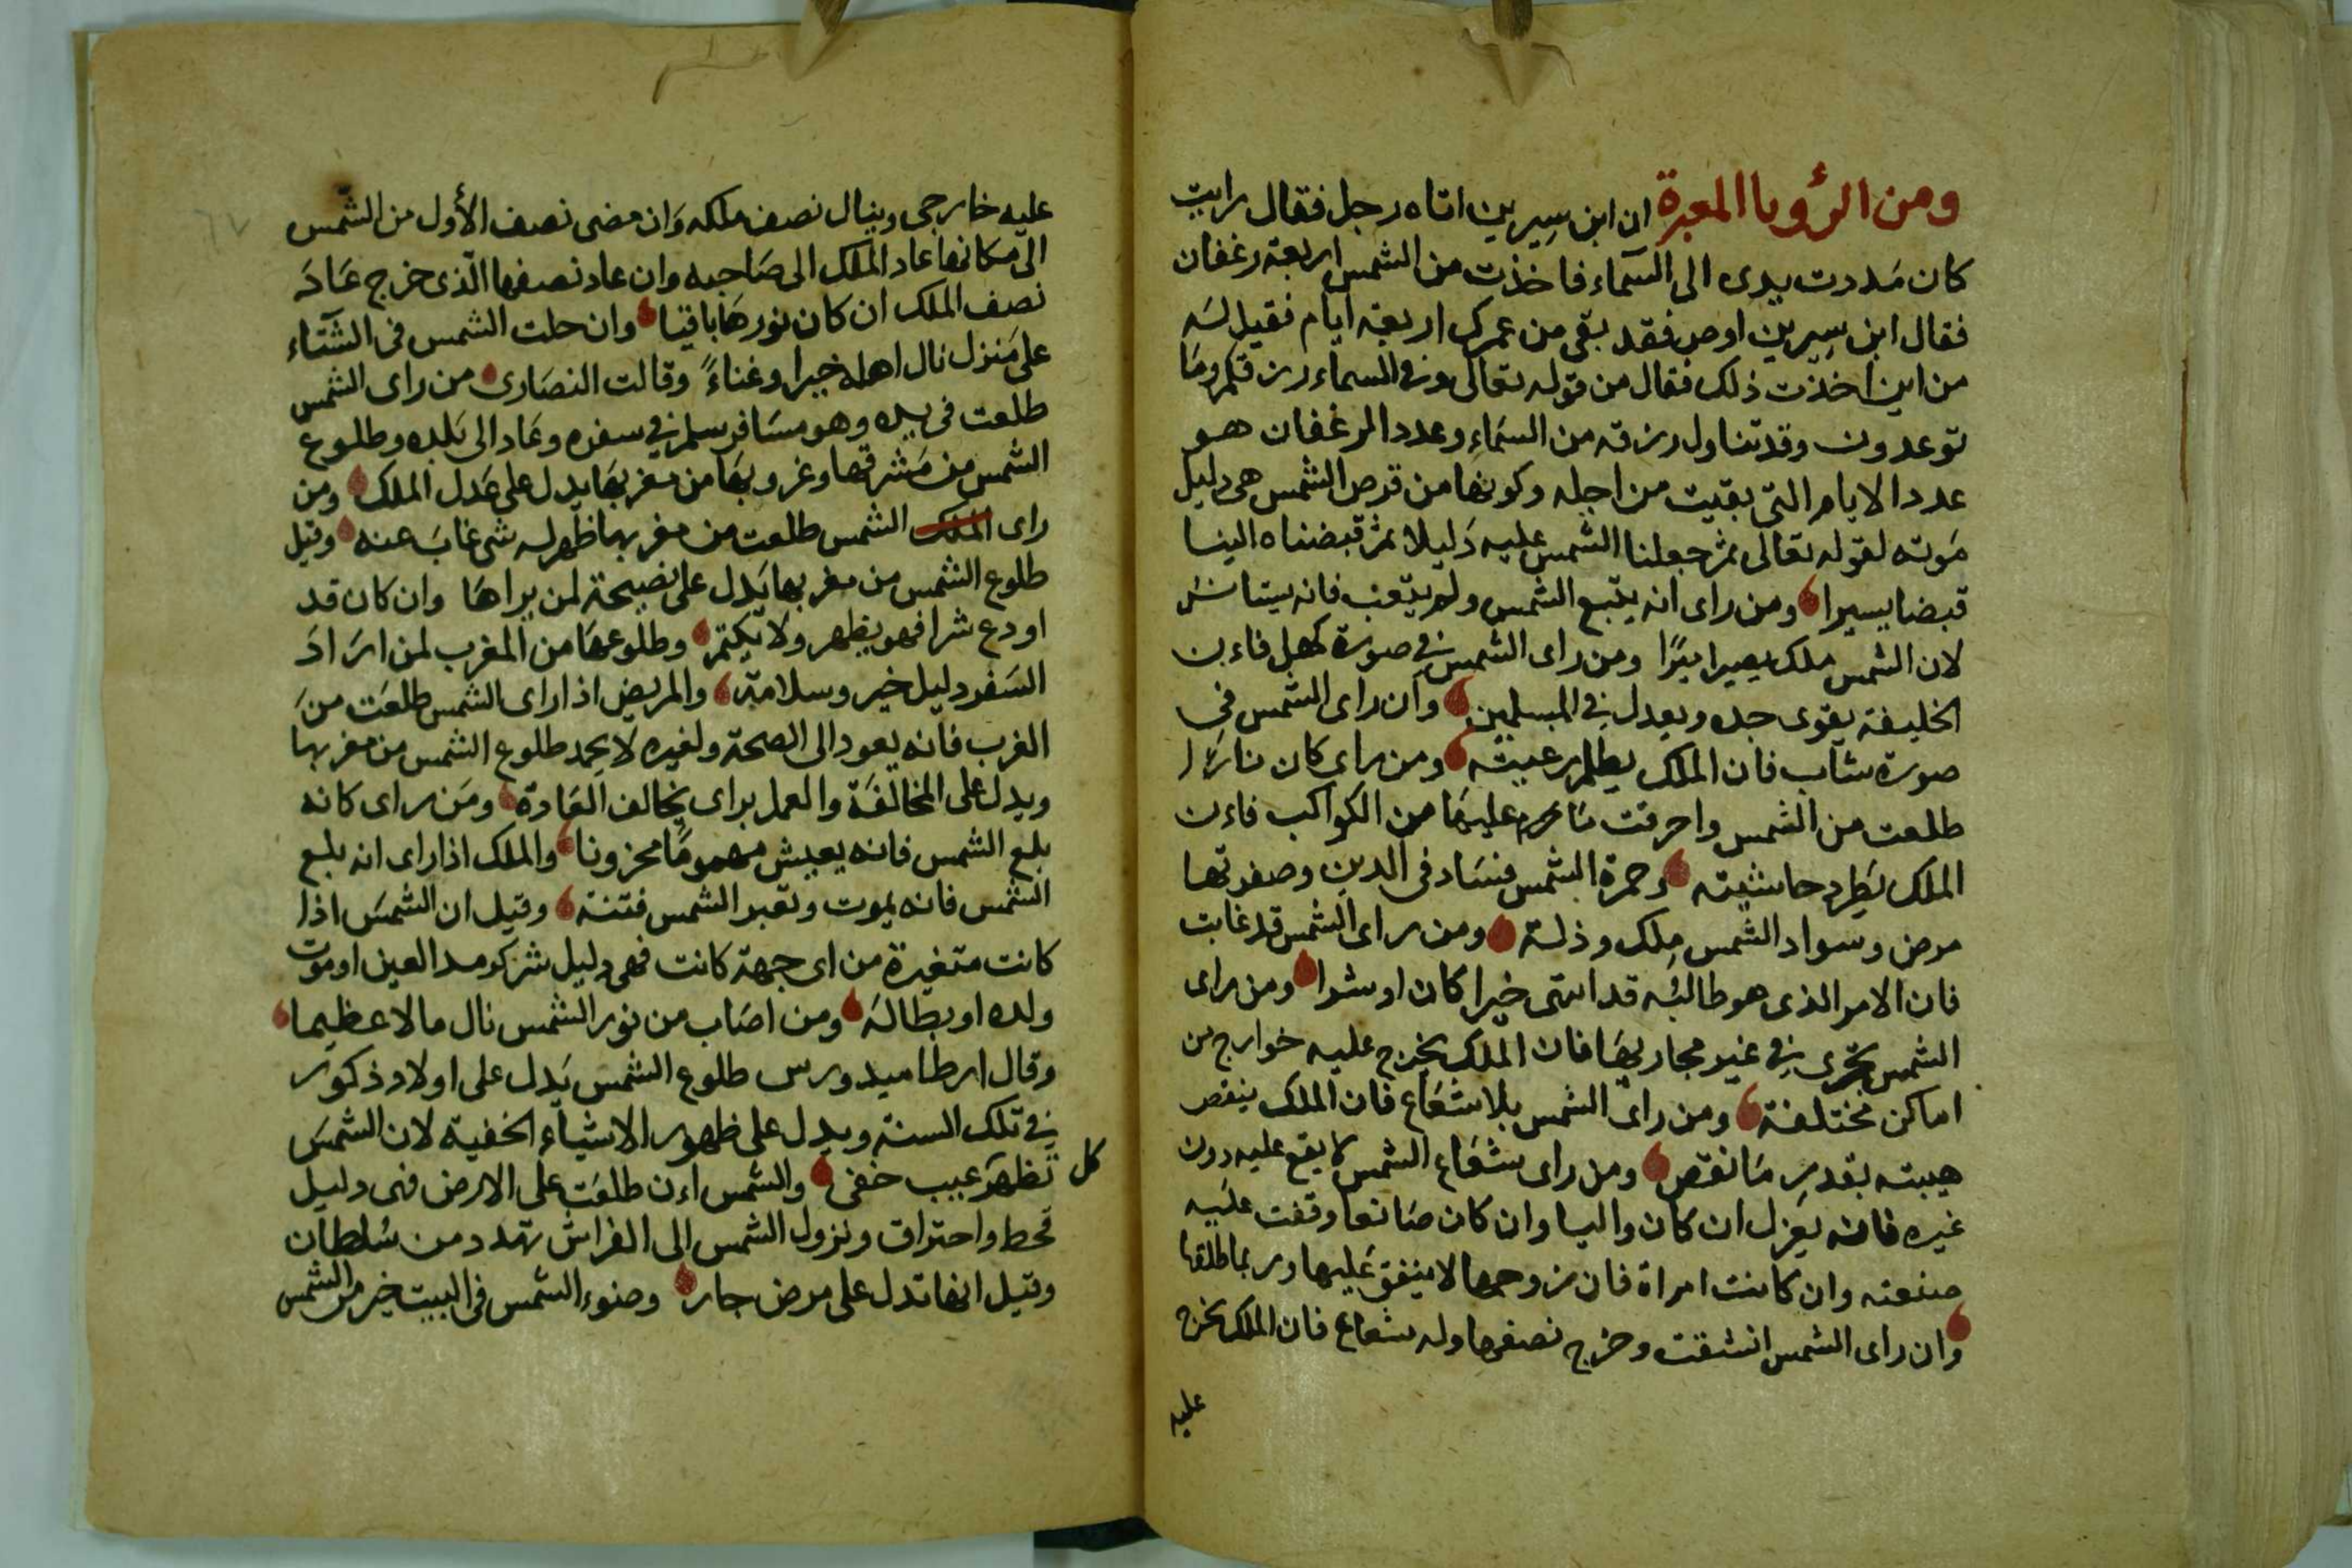 ومن الرؤيا المعبرة ان ابن سيرين اتاه رجل فقال رايت
كان مددت يدى الى السماء فاخذت من الشمس اربعة رغفان
فقال ابن سيرين اوص فقد بقى من عمرك اربعة ايام فقيل له
من اين اخذت ذلك فقال من قوله تعالى وفي السماء رزقكم وما
توعدون وقد تناول رزقه من السماء وعدد الرغفان هو
عدد الايام التى بقيت من اجله وكونها من قرص الشمس هى دليل
موته لقوله تعالى ثم جعلنا الشمس عليه دليلا ثم قبضناه الينا
قبضا يسيرا ومن راى انه يتبع الشمس ولم يتعب فانه يستاسر
لان الشمس ملك يصير ومن راى الشمس في صورة كهل فاءن
الخليفة يقوى جده ويعدل في المسلمين وان راى الشمس في
صورة شاب فان الملك يظلم رعيته ومن راى كان نارا
طلعت من الشمس واحرقت ما عليها من الكواكب فاءن
الملك يطرد حاشيته وحمرة الشمس فساد فى الدين وصفرتها
مرض وسواد الشمس ملك وذلة ومن راى الشمس قد غابت
فان الامر الذى هو طالبه قد انتهى خيرا كان او شرا ومن راى
الشمس تجرى في غير مجاريها فان الملك يخرج عليه خوارج من
اماكن مختلفة ومن راى الشمس بلا شعاع فان الملك ينقص
هيبته بقدر ما نقص ومن راى شعاع الشمس لا يقع عليه دون
غيره فانه يعزل ان كان واليا وان كان صانعا وقفت عليه
صنعته وان كانت امراة فان زوجها لا ينفق عليها وربما طلقها
وان راى الشمس انشقت وخرج نصفها وله شعاع فان الملك يخرج
عليه
عليه خارجى وينال نصف ملكه وان مضى نصف الأول من الشمس
الى مكانها عاد الملك الى صاحبه وان عاد نصفها الذى خرج عاد
نصف الملك ان كان نورها باقيا وان حلت الشمس فى الشتاء
على منزل نال اهله خيرا وغناء وقالت النصارى من راى الشمس
طلعت فى يده وهو مسافر سلم في سفره وعاد الى بلده وطلوع
الشمس من مشرقها وغروبها من مغربها يدل على عدل الملك ومن
راى الملك الشمس طلعت من مغربها ظهر له شى غاب عنه وقيل
طلوع الشمس من مغربها يدل على نصيحة لمن يراها وان كان قد
اودع شرا فهو يظهر ولا يكتم وطلوعها من المغرب لمن اراد
السفر دليل خير وسلامة والمريض اذا راى الشمس طلعت من
الغرب فانه يعود الى الصحة ولغيره لا يحمد طلوع الشمس من مغربها
ويدل على المخالفة والعمل براى يخالف العادة ومن راى كانه
بلع الشمس فانه يعيش مهموما محزونا والملك اذا راى انه بلع
الشمس فانه يموت وتغير الشمس فتنة وقيل ان الشمس اذا
كانت متغيرة من اى جهة كانت فهى دليل شر كرمد العين او موت
ولده او بطالة ومن اصاب من نور الشمس نال مالا عظيما
وقال ارطاميدورس طلوع الشمس يدل على اولاد ذكور
في تلك السنة ويدل على ظهور الاشياء الخفية لان الشمس
تظهر كل عيب خفى والشمس اءن طلعت على الارض فهى دليل
قحط واحتراق ونزول الشمس الى الفراش تهدد من سلطان
وقيل انها تدل على مرض حار وضوء الشمس فى البيت خير من الشمس